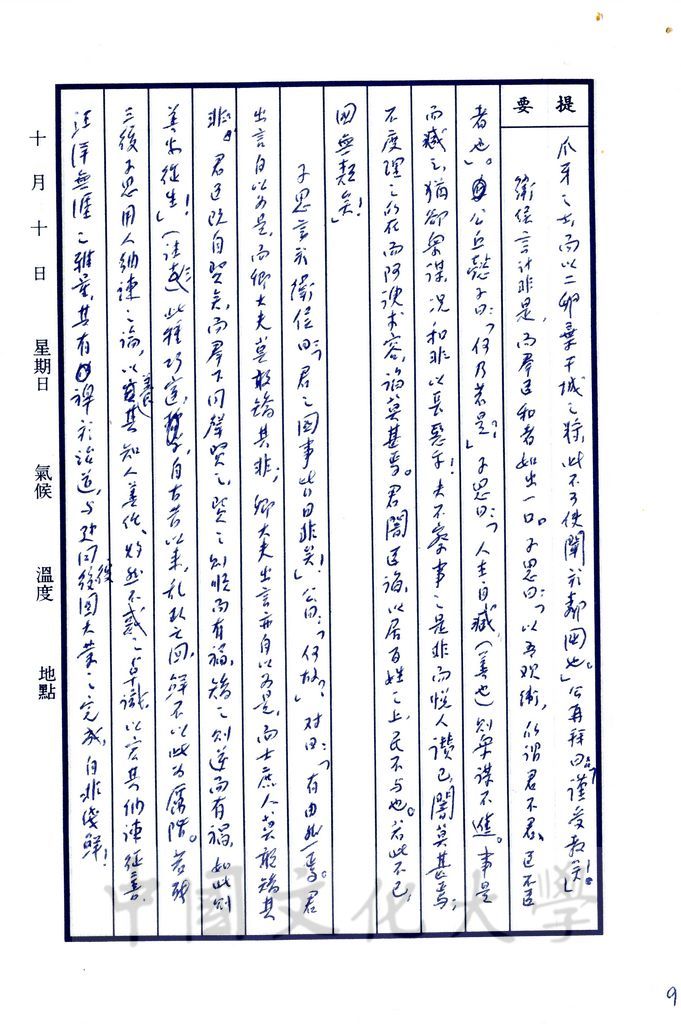 提要
爪牙之士，而以二卵棄干城之將，此不可使聞於鄰國也」。公再拜曰：「謹受教矣！」
衛侯言計非是，而群臣和者如出一口。子思曰：「以吾觀衛，所謂君不君、臣不臣
者也」。公丘懿子曰：「何乃若是？」子思曰：「人主自臧（善也）則眾謀不進。事是
而臧之，猶卻眾謀，況和非以長惡乎！夫不察事之是非而悅人讚己，闇莫甚焉；
不度理之所在而阿諛求容，諂莫甚焉。君闇臣諂，以居百姓之上，民不与也。若此不已，
國無類矣！」
子思言於衛侯曰：「君之國事將日非矣！」公曰：「何故？」对曰：「有由然焉。君
出言自以為是，而卿大夫莫敢矯其非；卿大夫出言亦自以為是，而士庶人莫敢矯其
非。君臣既自賢矣，而群下同聲賢之，賢之則順而有福，矯之則逆而有禍，如此則
善安從生！」此種 自古昔以來，亂 亡國，鮮不以此為厲階。若
三後子思用人納諫之論，以 其知人善任、 然不惑之 識，以宏其納諫從善、
汪洋無涯之雅量，其有裨於治道，与 同後國大業之完成，自非淺鮮！
十月十日 星期日 氣候 溫度 地點
中國文化大學
9